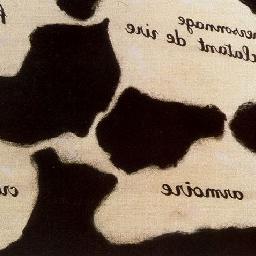 personnage
éclatant de rire
armoire